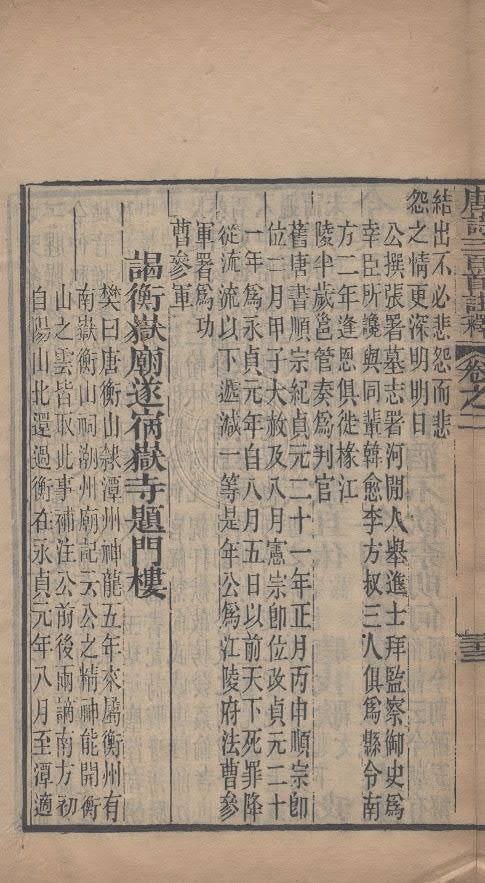 唐詩三百首註釋 卷之二
結出不必悲怨而悲
怨之情更深明明日
公撰張署墓志署河閒人舉進士拜監察御史爲
幸臣所讒與同輩韓愈李方叔三人俱爲縣令南
方二年逢恩俱徙掾江
陵半歲邕管奏爲判官
舊唐書順宗紀貞元二十一年正月丙申順宗卽
位二月甲子大赦及八月憲宗卽位改貞元二十
一年爲永貞元年自八月五日以前天下死罪降
從流流以下遞減一等是年公爲江陵府法曹參
軍署爲功
曹參軍
謁衡嶽廟遂宿嶽寺題門樓
樊曰唐衡山隷潭州神龍五年來屬衡州有
南嶽衡山祠潮州廟記云公之精神能開衡
山之雲皆取此事補注公前後兩謫南方初
自陽山北還過衡在永貞元年八月至潭適